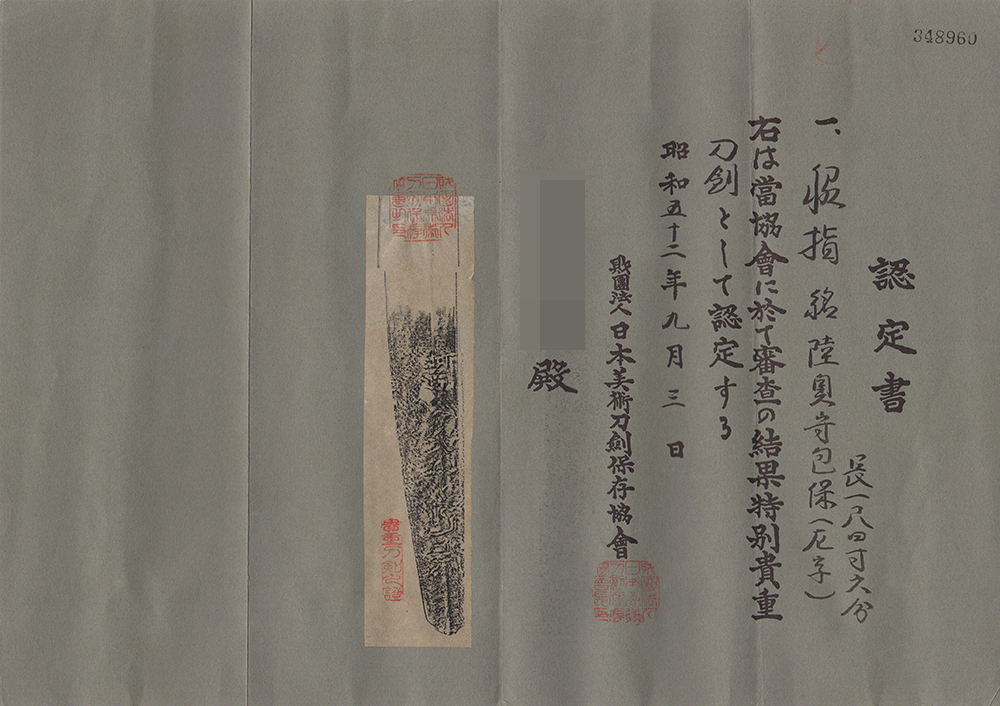 348960
認定書
一、脇指 銘 陸奥守包保(左字)
長一尺四寸六分
右は當協會に於て審査の結果特別貴重
刀劍として認定する
昭和五十二年九月三日
財團法人日本美術刀劍保存協會
殿
貴重刀剣之證